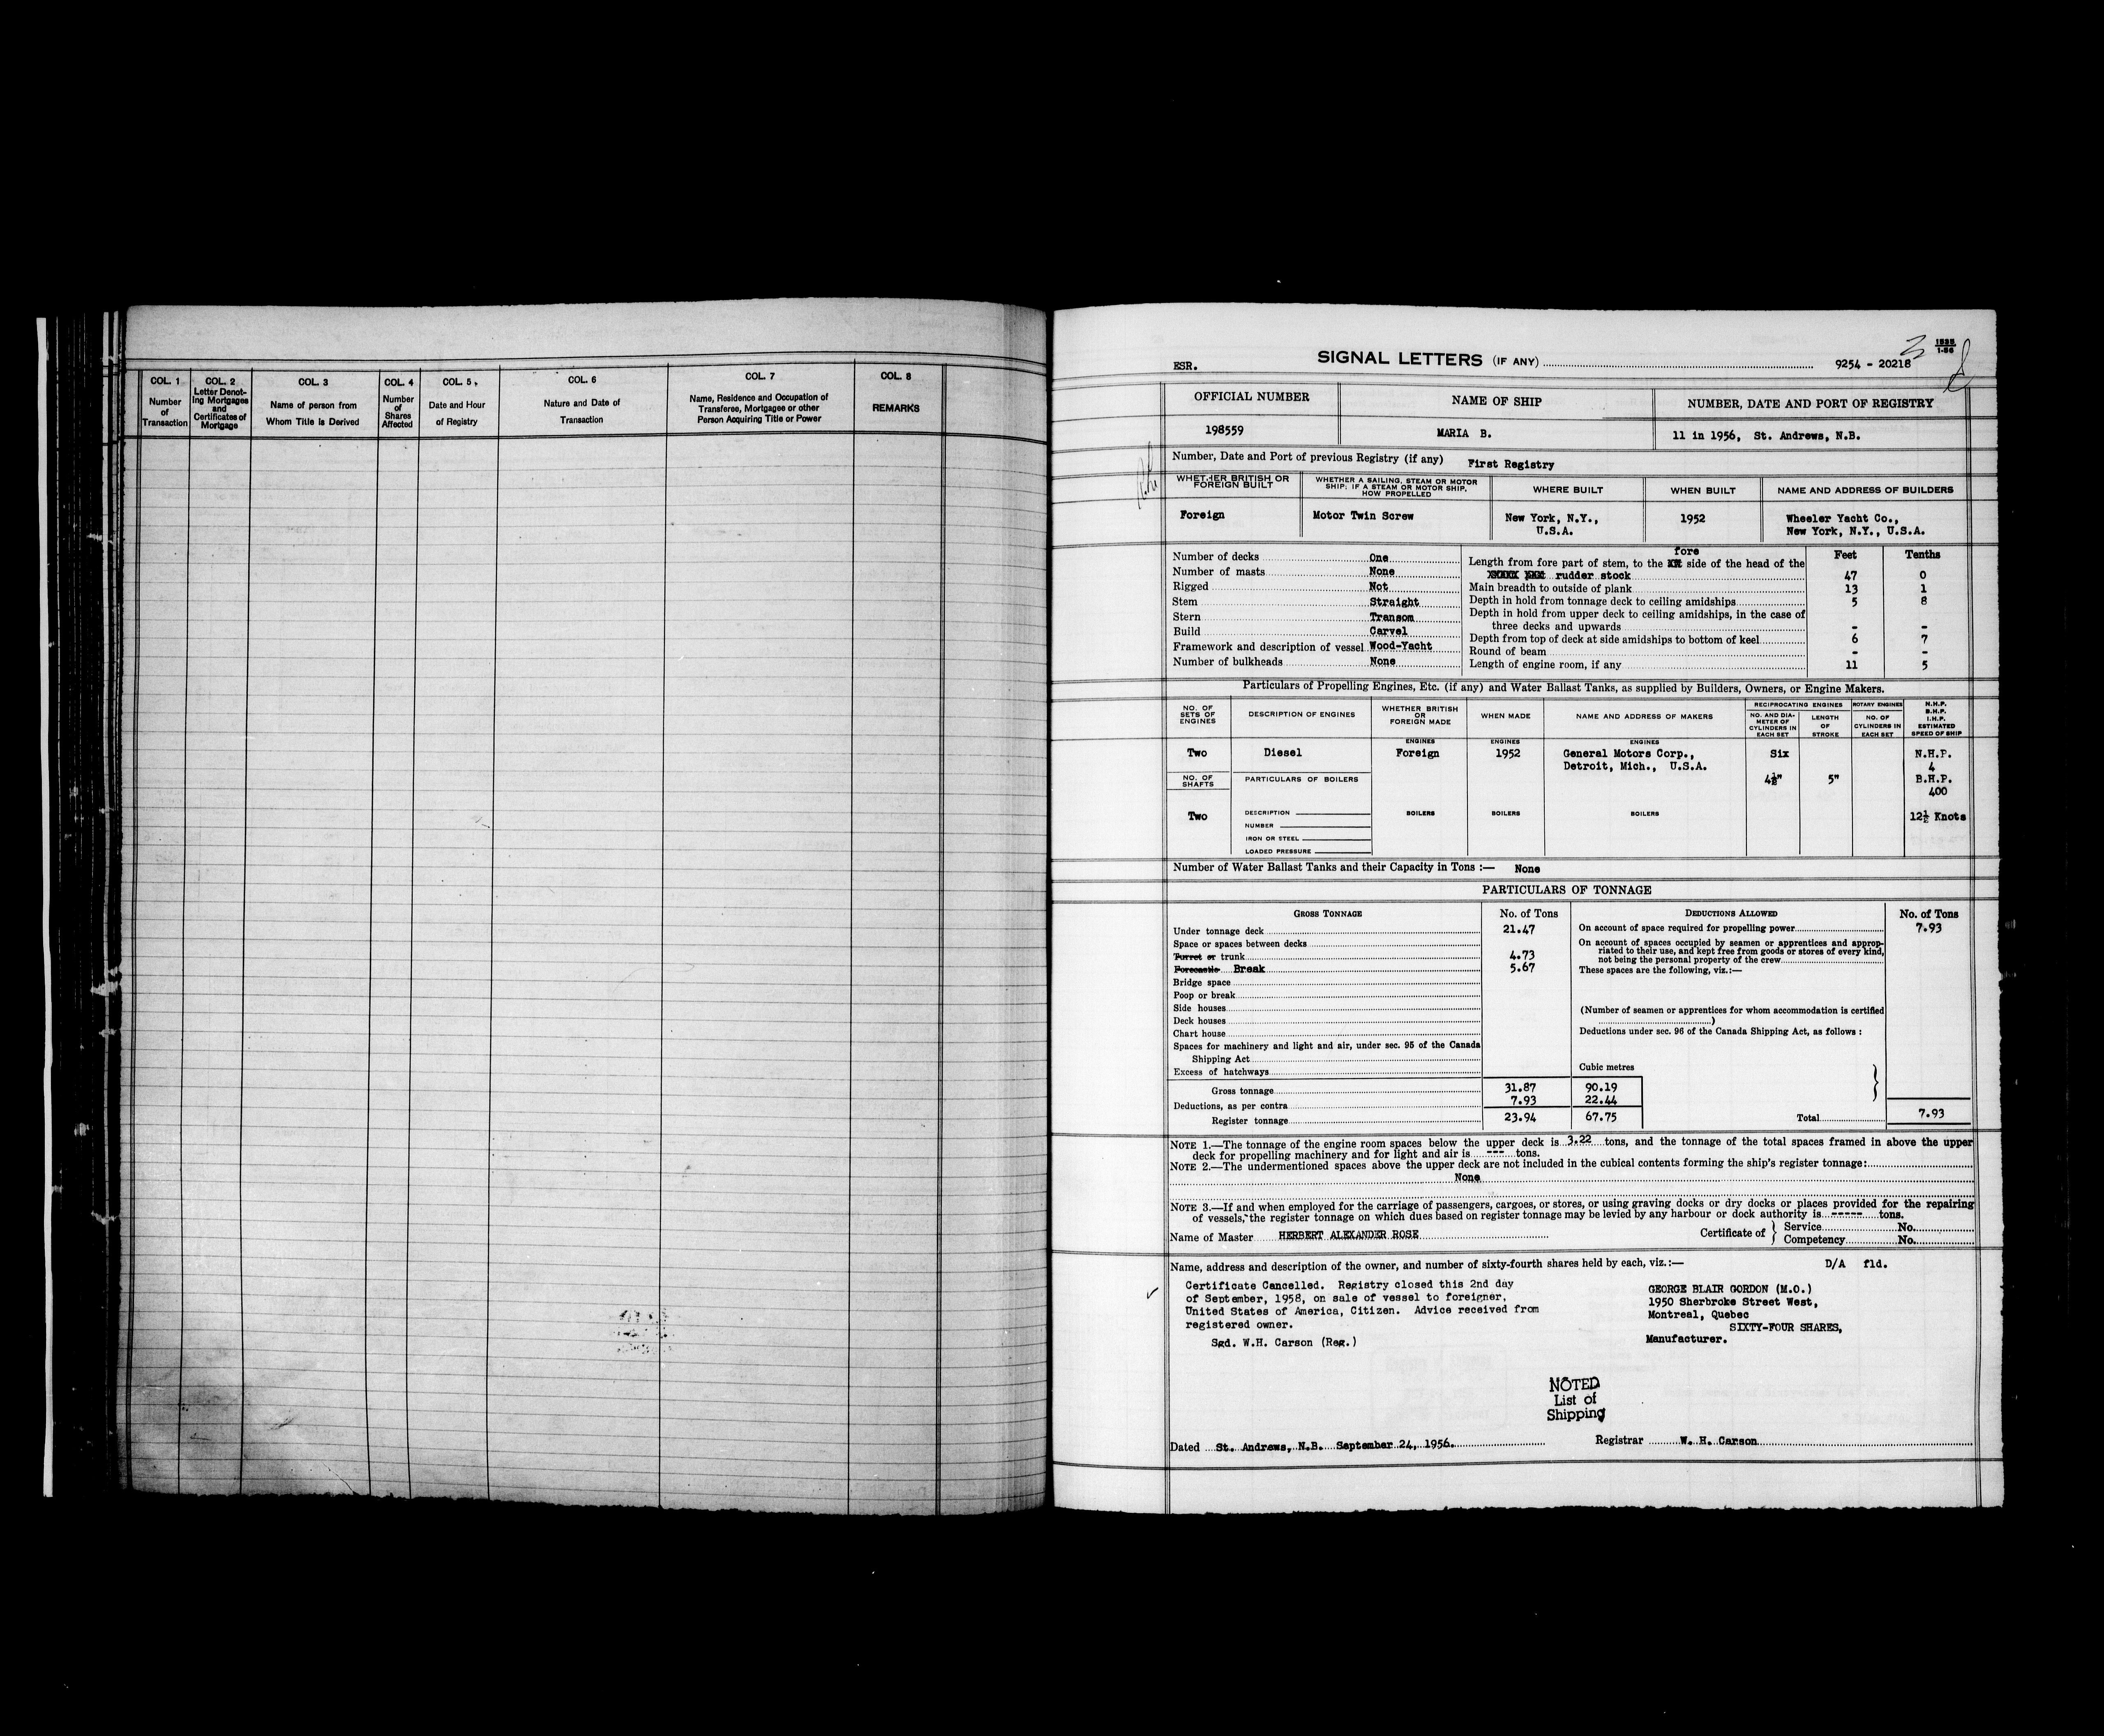 COL. 1
Number
of
Transaction
COL. 2
Letter Denot-
ing Mortgages
and
Certificates of
Mortgage
COL. 3
Name of person from
Whom Title is Derived
COL. 4
Number
of
Shares
Affected
COL. 5
Date and Hour
of Registry
COL. 6
Nature and Date of
Transaction
COL. 7
Name, Residence and Occupation of
Transferee, Mortgagee or other
Person Acquiring Title or Power
COL. 8
REMARKS
ESR.
SIGNAL LETTERS (IF ANY)
9254 - 20218
3
1-56
OFFICIAL NUMBER
NAME OF SHIP
NUMBER, DATE AND PORT OF REGISTRY
198559
MARIA B.
11 in 1956, St. Andrews, N.B.
Number, Date and Port of previous Registry (if any) First Registry
WHETHER BRITISH OR
FOREIGN BUILT
WHETHER A SAILING, STEAM OR MOTOR
SHIP; IF A STEAM OR MOTOR SHIP,
HOW PROPELLED
WHERE BUILT
WHEN BUILT
NAME AND ADDRESS OF BUILDERS
Foreign
Motor Twin Screw
New York, N.Y.,
U.S.A.
1952
Wheeler Yacht Co.,
New York, N.Y., U.S.A.
Number of decks One
Number of masts None
Rigged Not
Stem Straight
Stern Transom
Build Carvel
Framework and description of vessel Wood-Yacht
Number of bulkheads None
Feet Tenths
fore
Length from fore part of stem, to the side of the head of the
rudder stock 47 0
Main breadth to outside of plank 13 1
Depth in hold from tonnage deck to ceiling amidships 5 8
Depth in hold from upper deck to ceiling amidships, in the case of
three decks and upwards - -
Depth from top of deck at side amidships to bottom of keel 6 7
Round of beam - -
Length of engine room, if any 11 5
Particulars of Propelling Engines, Etc. (if any) and Water Ballast Tanks, as supplied by Builders, Owners, or Engine Makers.
NO. OF
SETS OF
ENGINES
DESCRIPTION OF ENGINES
WHETHER BRITISH
OR
FOREIGN MADE
WHEN MADE
NAME AND ADDRESS OF MAKERS
RECIPROCATING ENGINES
NO. AND DIA-
METER OF
CYLINDERS IN
EACH SET
LENGTH
OF
STROKE
ROTARY ENGINES
NO. OF
CYLINDERS IN
EACH SET
N.H.P.
B.H.P.
I.H.P.
ESTIMATED
SPEED OF SHIP
ENGINES
ENGINES
ENGINES
Two
Diesel
Foreign
1952
General Motors Corp.,
Detroit, Mich., U.S.A.
Six
4¼"
5"
N.H.P.
4
B.H.P.
400
12½ Knots
NO. OF
SHAFTS
PARTICULARS OF BOILERS
Two
DESCRIPTION
NUMBER
IRON OR STEEL
LOADED PRESSURE
BOILERS
BOILERS
BOILERS
Number of Water Ballast Tanks and their Capacity in Tons :— None
PARTICULARS OF TONNAGE
GROSS TONNAGE
No. of Tons
Under tonnage deck 21.47
Space or spaces between decks
Turret or trunk 4.73
Forecastle Break 5.67
Bridge space
Poop or break
Side houses
Deck houses
Chart house
Spaces for machinery and light and air, under sec. 95 of the Canada
Shipping Act
Excess of hatchways
Cubic metres
Gross tonnage 31.87 90.19
Deductions, as per contra 7.93 22.44
Register tonnage 23.94 67.75
DEDUCTIONS ALLOWED
No. of Tons
On account of space required for propelling power 7.93
On account of spaces occupied by seamen or apprentices and approp-
riated to their use, and kept free from goods or stores of every kind,
not being the personal property of the crew
These spaces are the following, viz.:—
(Number of seamen or apprentices for whom accommodation is certified
)
Deductions under sec. 96 of the Canada Shipping Act, as follows :
Total 7.93
NOTE 1.—The tonnage of the engine room spaces below the upper deck is 3.22 tons, and the tonnage of the total spaces framed in above the upper
deck for propelling machinery and for light and air is --- tons.
NOTE 2.—The undermentioned spaces above the upper deck are not included in the cubical contents forming the ship's register tonnage:
None
NOTE 3.—If and when employed for the carriage of passengers, cargoes, or stores, or using graving docks or dry docks or places provided for the repairing
of vessels, the register tonnage on which dues based on register tonnage may be levied by any harbour or dock authority is ------ tons.
Name of Master HERBERT ALEXANDER ROSE
Certificate of } Service No.
Competency No.
Name, address and description of the owner, and number of sixty-fourth shares held by each, viz.:— D/A fld.
Certificate Cancelled. Registry closed this 2nd day
of September, 1958, on sale of vessel to foreigner,
United States of America, Citizen. Advice received from
registered owner.
Sgd. W.H. Carson (Reg.)
GEORGE BLAIR GORDON (M.O.)
1950 Sherbroke Street West,
Montreal, Quebec
SIXTY-FOUR SHARES,
Manufacturer.
NOTED
List of
Shipping
Dated St. Andrews, N.B. September 24, 1956.
Registrar W. H. Carson